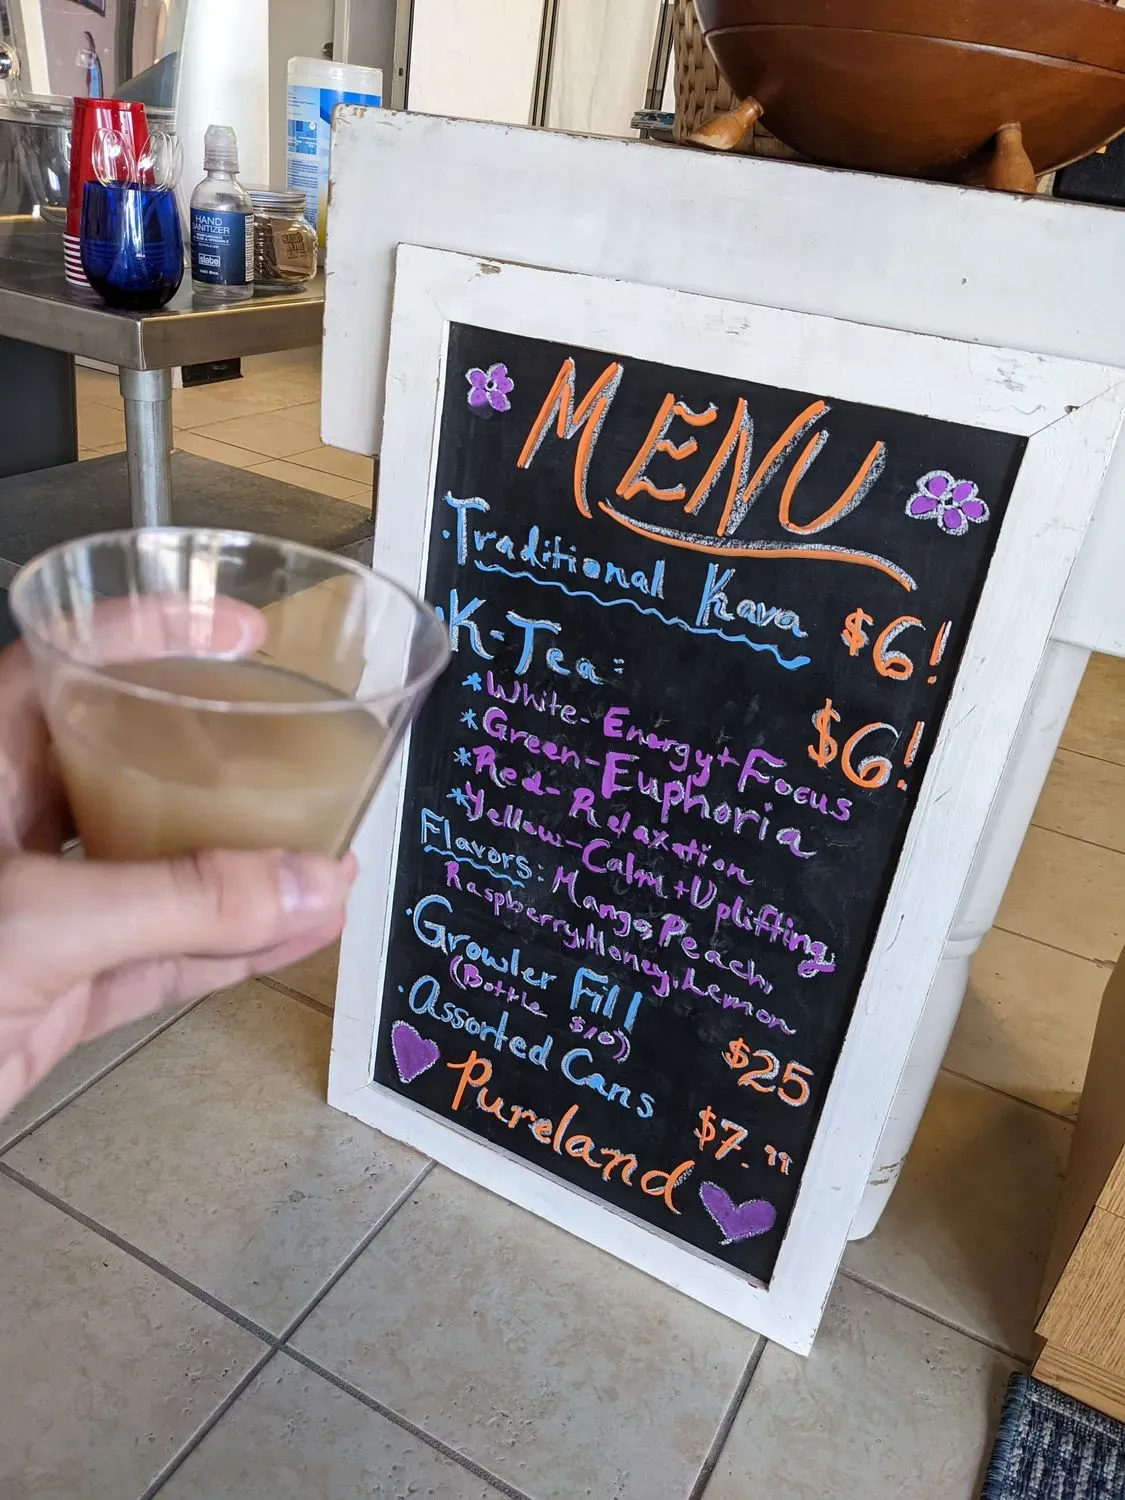 HAND
SANITIZER
slate
MENU
·Traditional Kava $6!
·K-Tea: $6!
*White-Energy+Focus
*Green-Euphoria
*Red-Relaxation
*Yellow-Calm+Uplifting
Flavors: Mango, Peach,
Raspberry, Honey, Lemon
·Growler Fill $25
(Bottle $10)
·Assorted Cans $7.99
Pureland